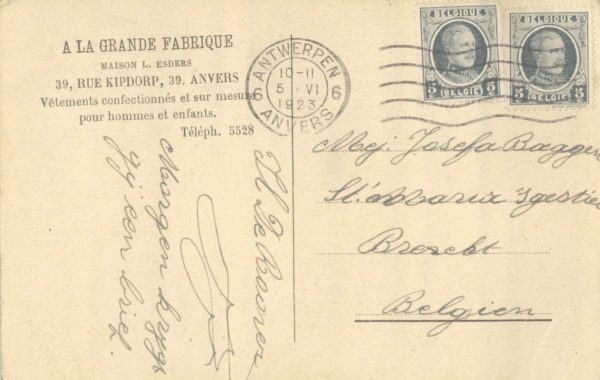 A LA GRANDE FABRIQUE
MAISON L. ESDERS
39, RUE KIPDORP, 39. ANVERS
Vêtements confectionnés et sur mesure
pour hommes et enfants.
Téléph. 5528
ANTWERPEN
10-11
5 · VI
1923
6 6
ANVERS
BELGIQUE
5 5
BELGIË
BELGIQUE
5 5
BELGIË
Morgen krijgt
gij een brief.
Mej. Josefa Baggen
St. Maria's gesticht
Brecht
Belgien